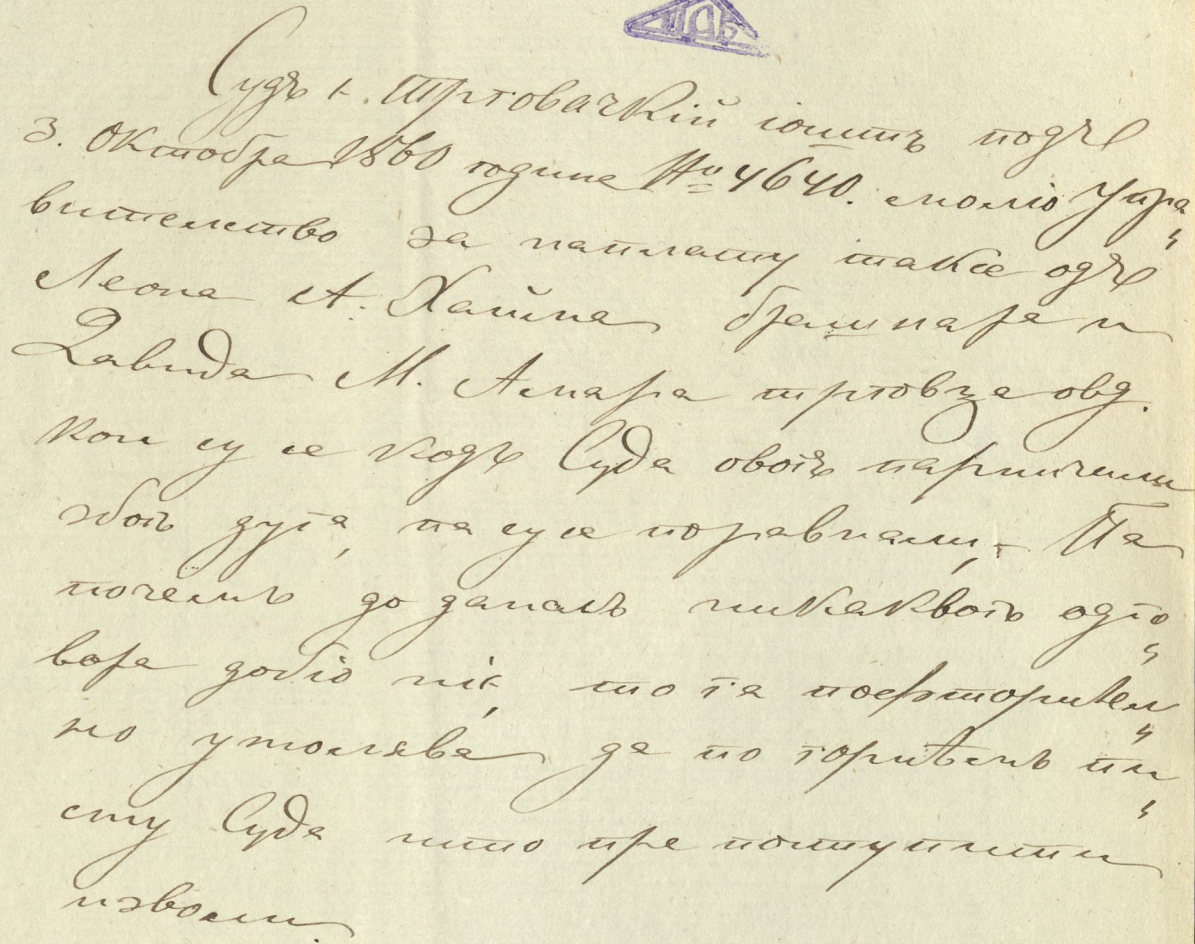 ИДБ
Судъ к. Трговачкій іоштъ подъ
3. Октобра 1860 године № 4640. молio Упра„
вителство за наплату таксе одъ
Леона А. Хаима брашнара и
Давида М. Амара трговца овд.
кои су се кодъ Суда овогъ парничили
збогъ дуга, па су се поравнали, – Па
почемъ до данасъ никаквогъ одго„
вора добіо ніє, то га повторител„
но умолява да по горнѣмъ пи„
сму Суда што пре поступити
изволи.